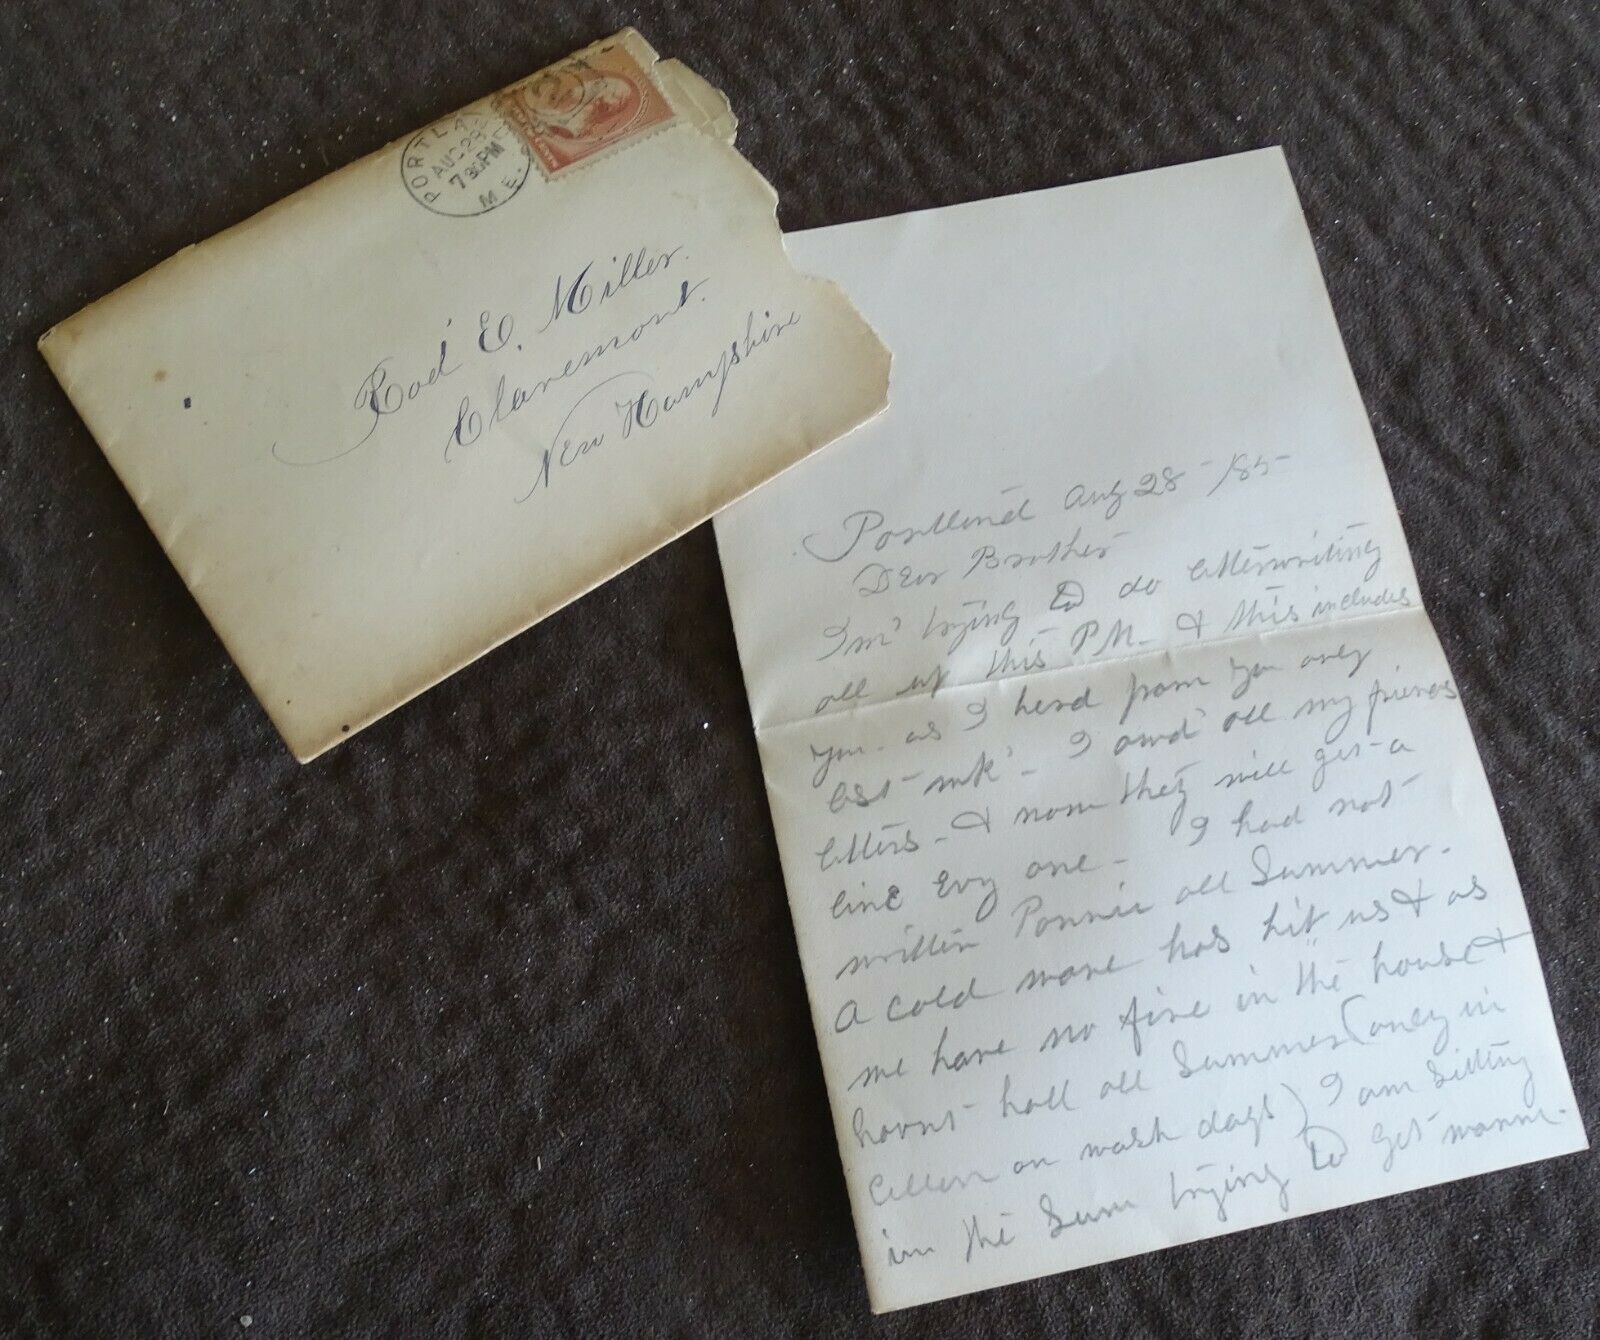 PORTLAND
AUG 29
7 30PM
M E.
Rod E. Miller.
Claremont.
New Hampshire
Portland Aug 28 - /85-
Dear Brother
I'm trying to do letterwriting
all up this PM - & this includes
you - as I heard from you only
last wk' - I owed all my friends
letters - & now they will get - a
line Evry one - I had not -
written Ponnie all Summer -
A cold wave has hit us & as
we have no fire in "the house &
havnt - had all Summer (only in
cellar on wash days) I am sitting
in the Sun trying to get warm -